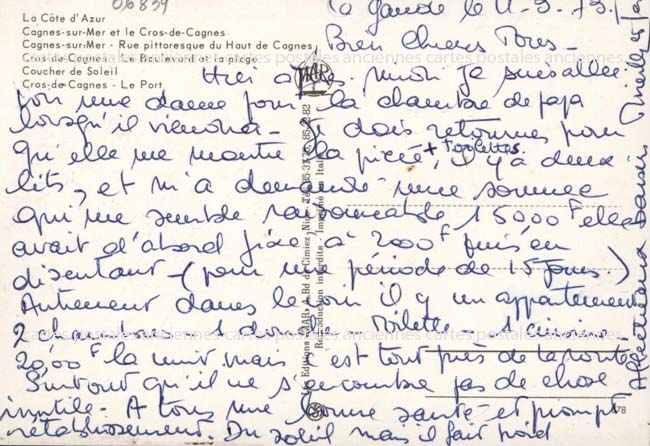 06839
La Gaude le 11-3-73
La Côte d'Azur
Cagnes-sur-Mer et le Cros-de-Cagnes
Cagnes-sur-Mer - Rue pittoresque du Haut de Cagnes
Cros-de-Cagnes - Le Boulevard et la plage
Coucher de Soleil
Cros-de-Cagnes - Le Port
Bien Chers Tous -
Hier après midi je suis allée
voir une dame pour la chambre de papa
lorsqu'il viendra - Je dois retourner pour
qu'elle me montre la pièce + Toilettes, il y a deux
lits, et m'a demandé une somme
qui me semble raisonnable 15000F elle
avait d'abord fixé à 2000F puis en
discutant - (pour une période de 15 jours)
Autrement dans le coin il y un appartement
2 chambres 1 douche - Toilette - 1 cuisine
20,00F la nuit mais c'est tout près de la route
Surtout qu'il ne s'encombre pas de chose
inutile - A tous une bonne santé et prompt
rétablissement. Du soleil mais il fait froid
Affectueux baisers
Les Editions "MAR" Bd de Cimiez, Nice
Reproduction interdite - Imprimé en Italie
cartes postales anciennes cartes postales anciennes
cartes postales anciennes cartes postales anciennes